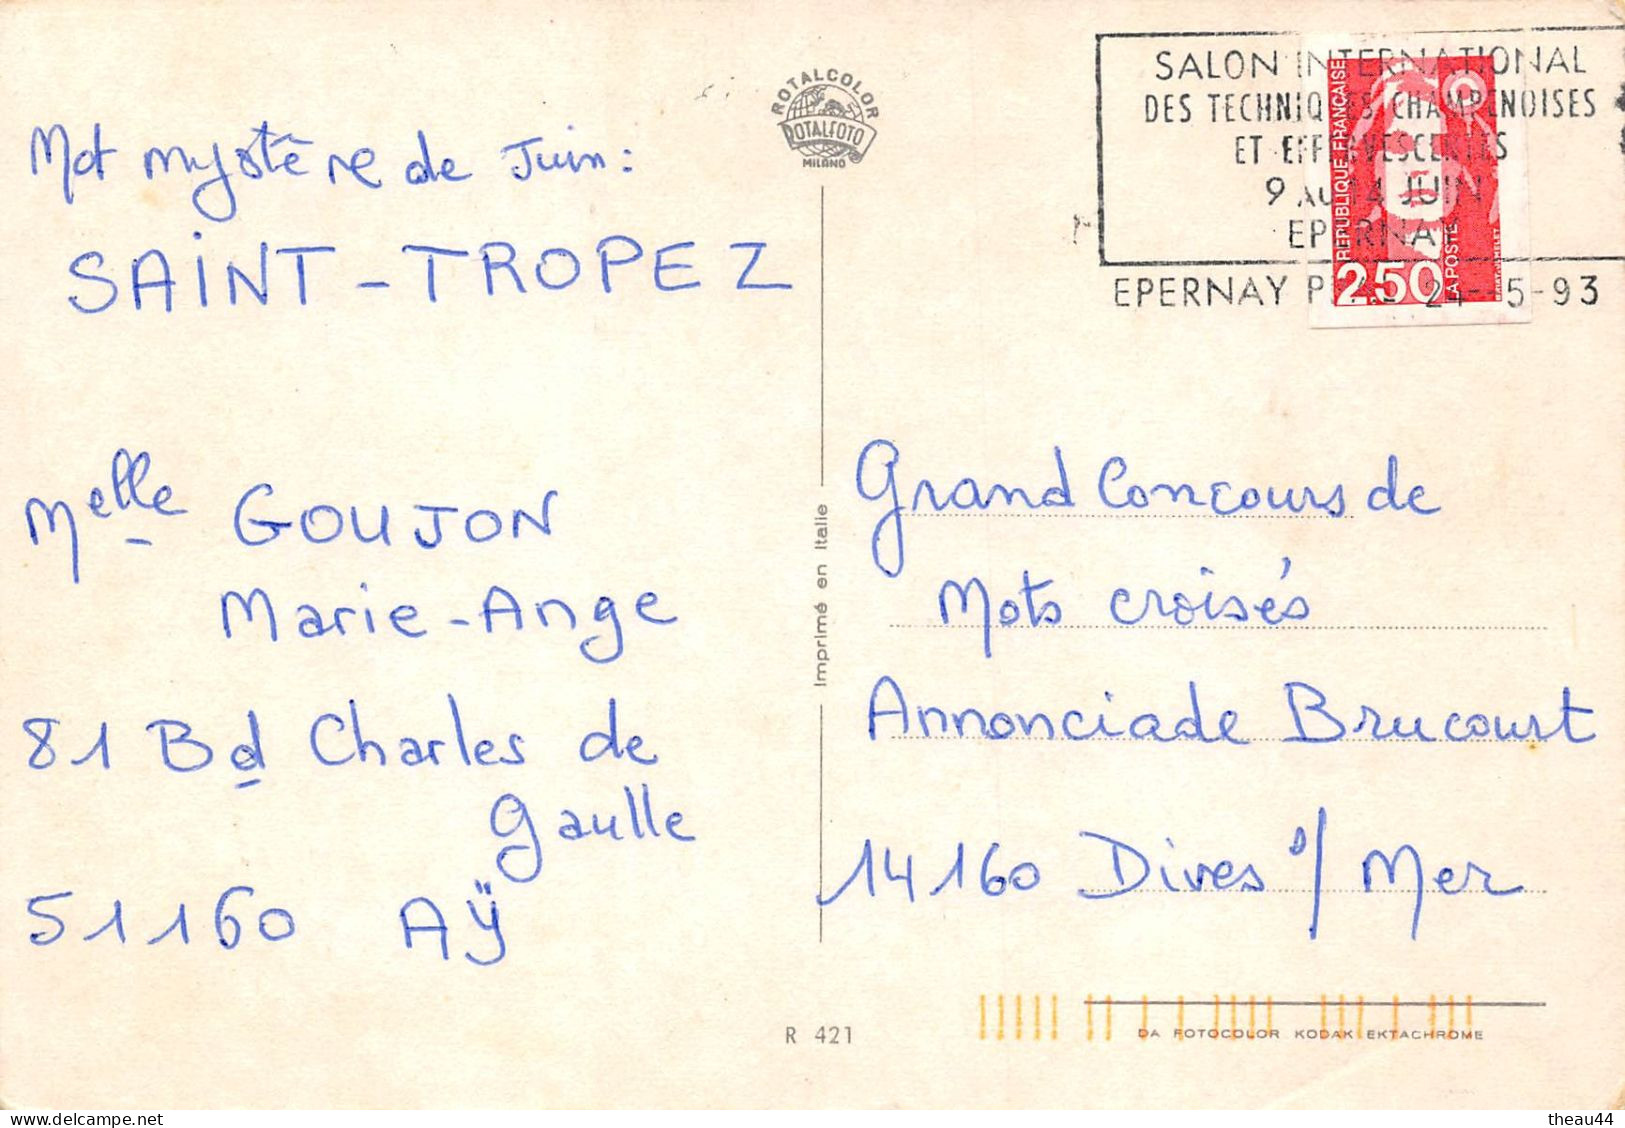 Mot mystère de Juin :
SAINT-TROPEZ
Melle GOUJON
Marie-Ange
81 Bd Charles de
Gaulle
51160 AŸ
ROTALCOLOR
ROTALFOTO
MILANO
Imprimé en Italie
R 421
SALON INTERNATIONAL
DES TECHNIQUES CHAMPENOISES
ET EFFERVESCENTES
9 AU 14 JUIN
EPERNAY
EPERNAY 24-5-93
REPUBLIQUE FRANÇAISE
LA POSTE
2,50
Grand Concours de
Mots croisés
Annonciade Brucourt
14160 Dives s/ Mer
DA FOTOCOLOR KODAK EKTACHROME
theau44